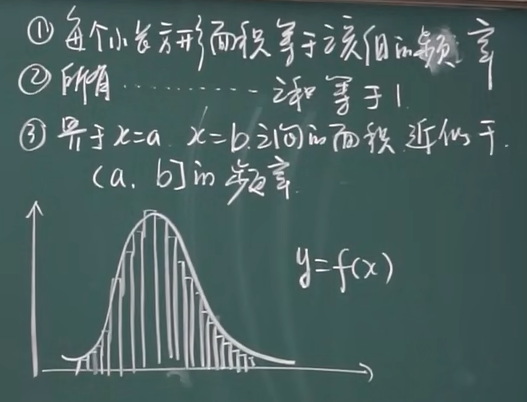 ① 每个小长方形面积等于该组的频率
② 所有············之和等于1
③ 界于x=a x=b之间的面积近似于
(a, b]的频率
y=f(x)